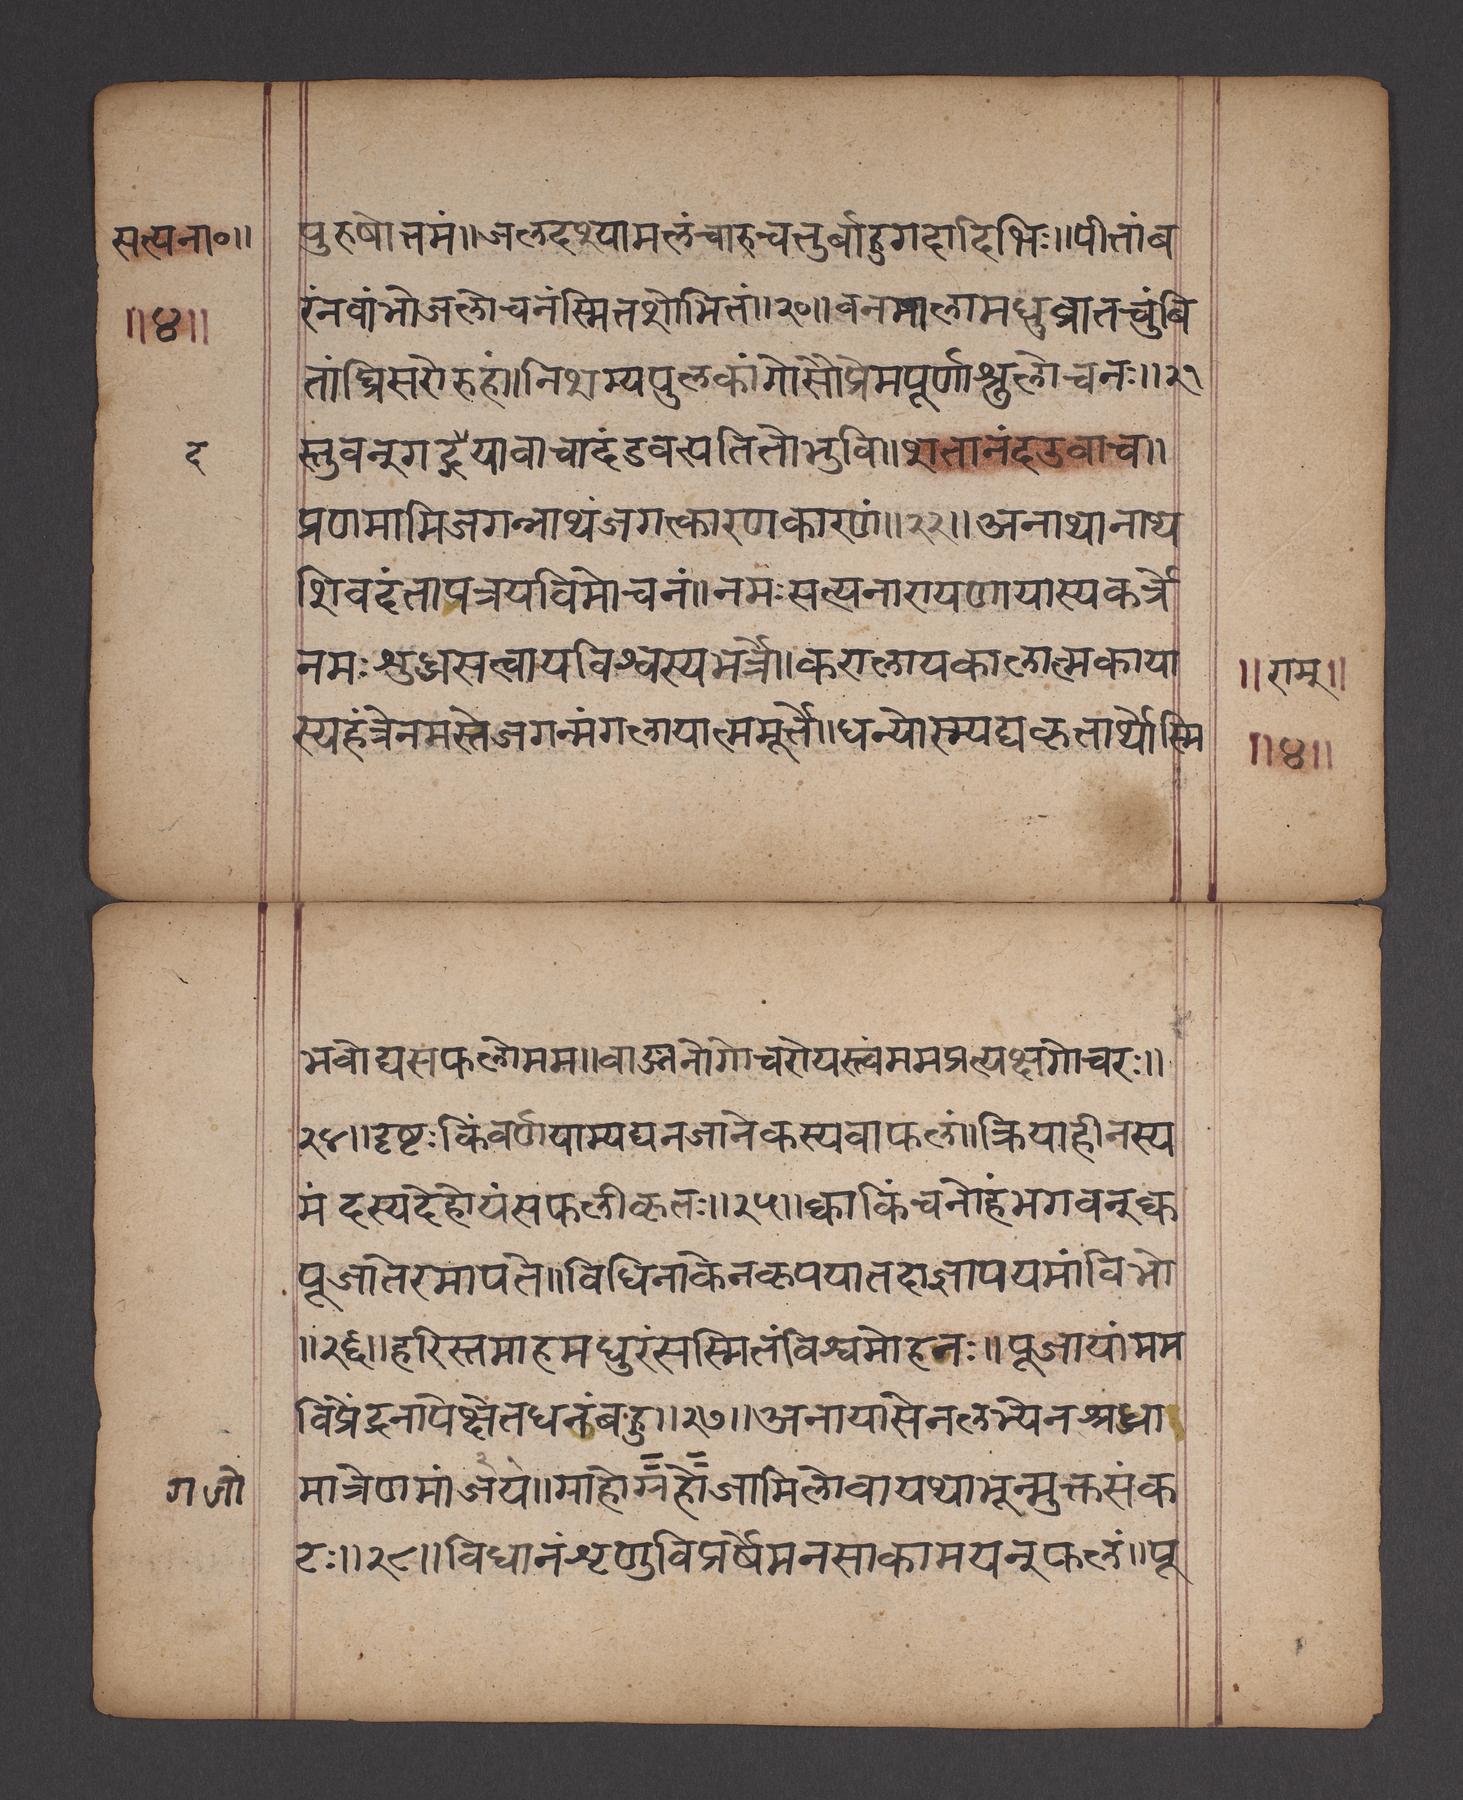 सत्यना०॥
॥४॥
द
पुरुषोत्तमं॥जलदश्यामलंचारुचतुर्बाहुगदादिभिः॥पीतांब
रंनवांभोजलोचनंस्मितशोभितं॥२०॥वनमालामधुव्रातचुंबि
तांघ्रिसरोरुहं॥निशम्यपुलकांगोसौप्रेमपूर्णाश्रुलोचनः॥२१
स्तुवन्गद्गैयावाचादंडवत्पतितोभुवि॥शतानंदउवाच॥
प्रणमामिजगन्नाथंजगत्कारणकारणं॥२२॥अनाथानाथ
शिवदंतापत्रयविमोचनं॥नमःसत्यनारायणायास्यकर्त्रे
नमःशुध्रसत्वायविश्वस्यभर्त्रे॥करालायकालात्मकाया
स्यहंत्रेनमस्तेजगन्मंगलायात्ममूर्त्ते॥धन्योस्म्यद्यकृतार्थोस्मि
॥रामृ॥
॥४॥
भवोद्यसफलोमम॥वाङ्मनोगोचरोयस्त्वंममप्रत्यक्षगोचरः॥
२४॥दृष्टःकिंवर्णयाम्यद्यनजानेकस्यवाफलं॥क्रियाहीनस्य
मंदस्यदेहोयंसफलीकृतः॥२५॥क्वाकिंचनोहंभगवन्क्व
पूजातेरमापते॥विधिनाकेनकृपयातदाज्ञापयमांविभो
॥२६॥हरिस्तमाहमधुरंसस्मितंविश्वमोहनः॥पूजायांमम
विप्रेंद्रनापेक्षेतधनंबहु॥२७॥अनायासेनलभ्येनश्रध्रा
मात्रेणमांजय॥माहोग्रहोजामिलोवायथाभून्मुक्तसंक
गजो
टः॥२८॥विधानंशृणुविप्रर्षेमनसाकामयन्फलं॥पू